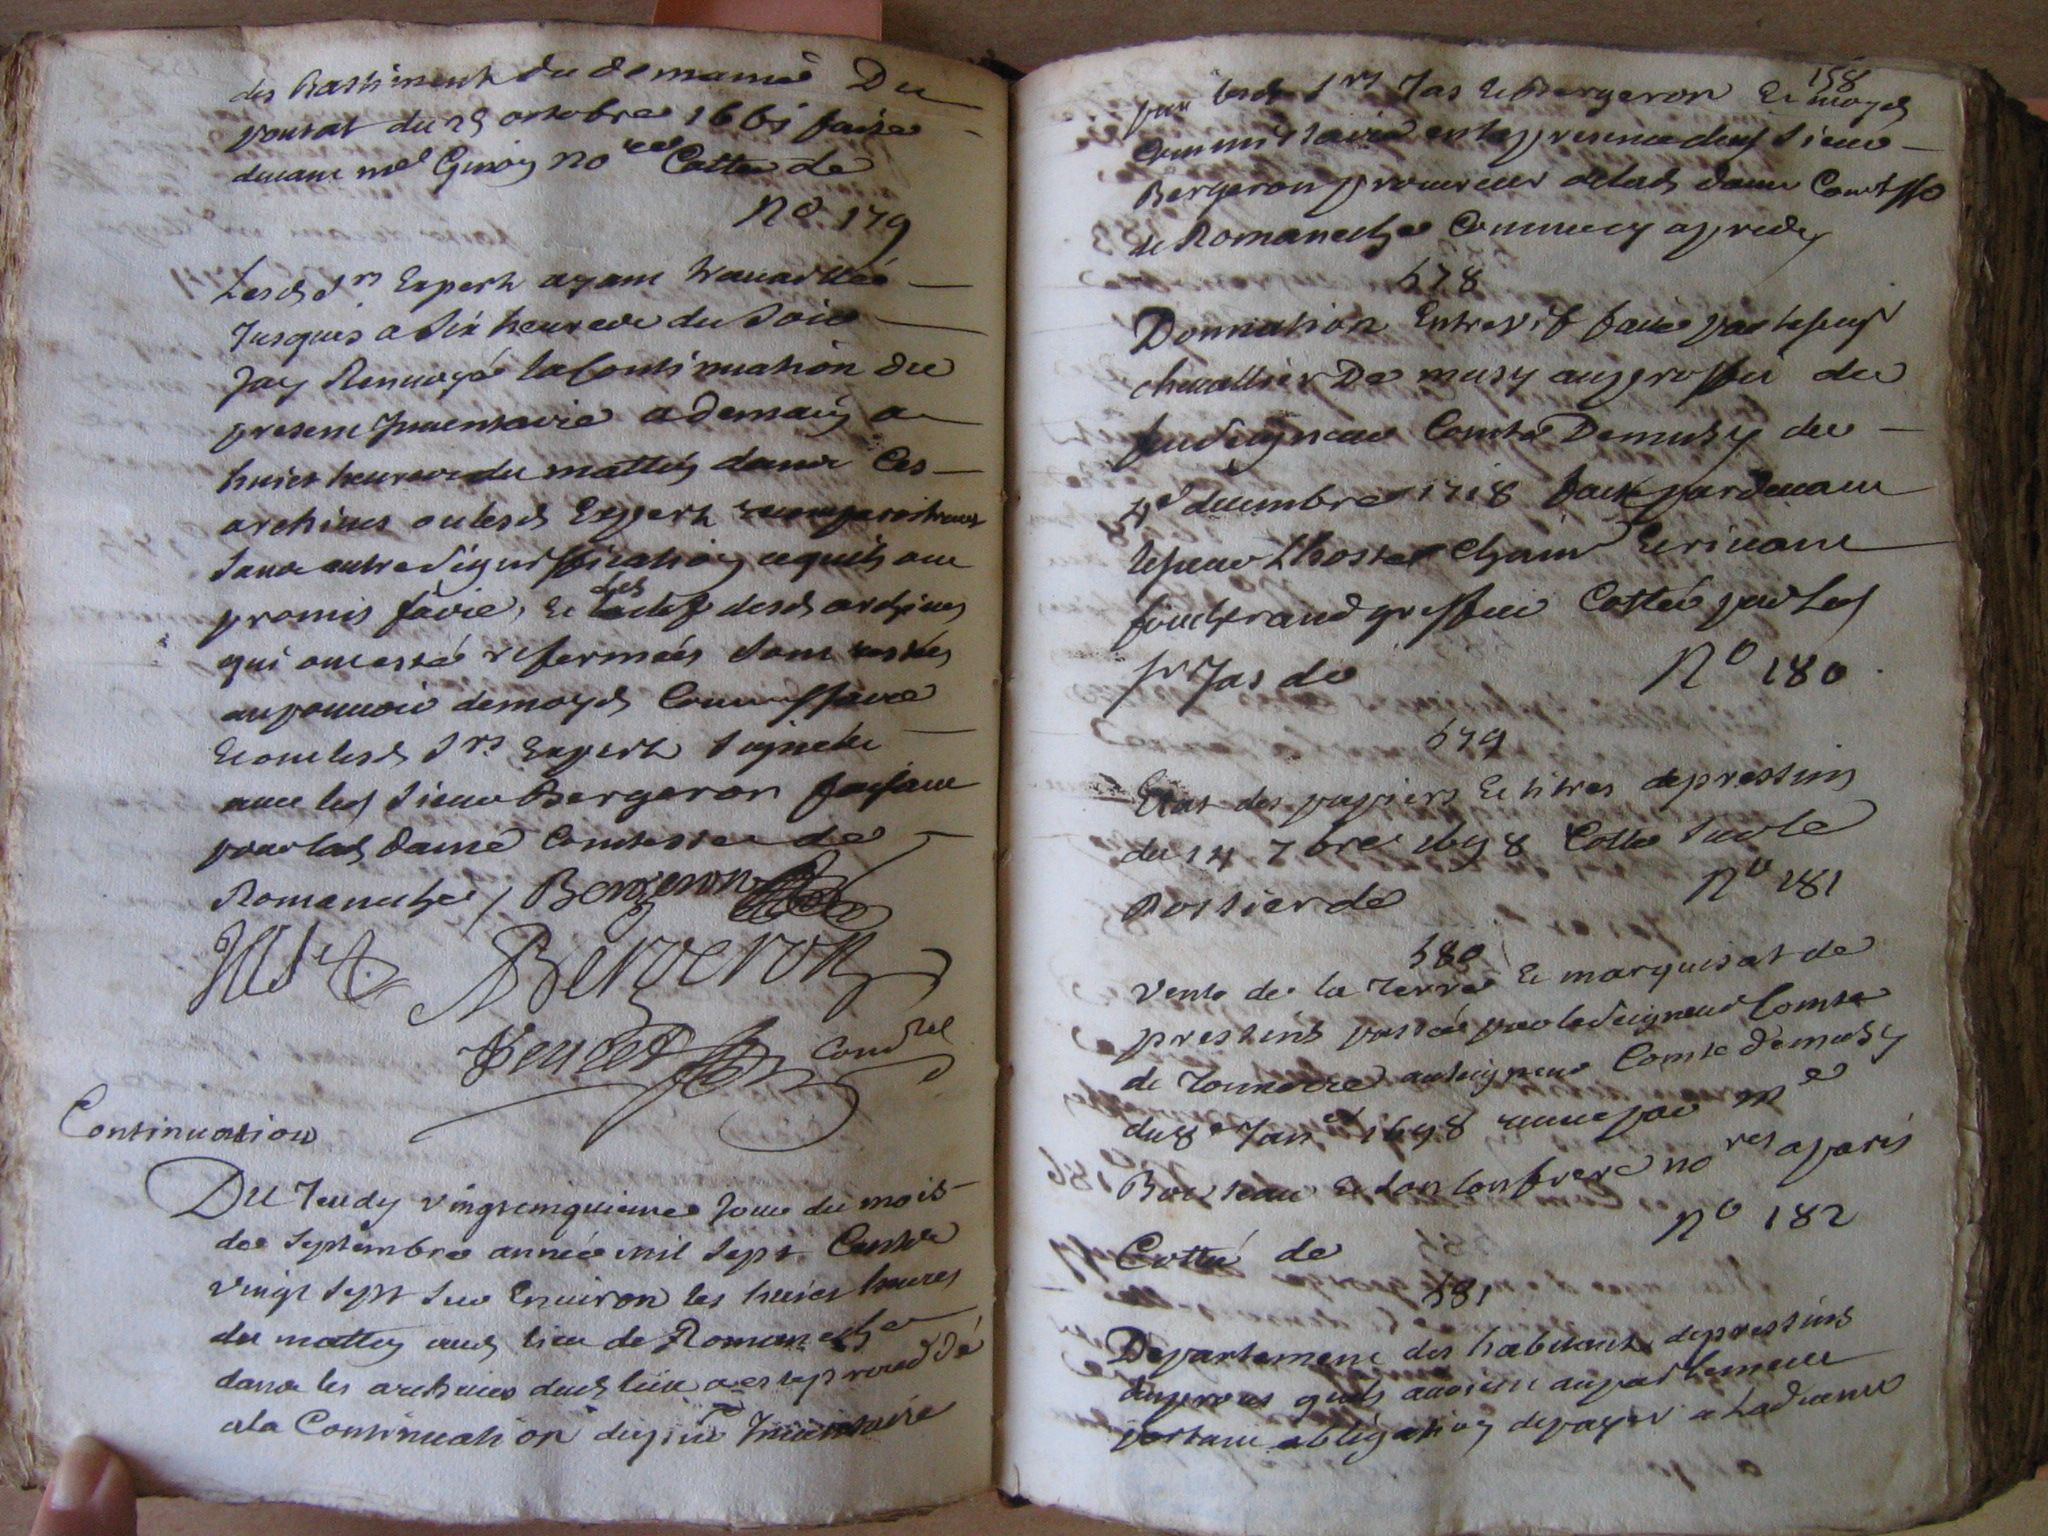 des Bastiment du domaine Du
pontat du 25 octobre 1661 faite
devant me Guioy no re Cotte de
No 179
Lesd srs Expert ayant travaillée
Jusques a six heurece du soir
Jay Renvoyé la Continuation du
present Inventaire a demaiy a
huict heurece du mattiy dance Ces
archives ou lesd Expert
sance autre signiffication ce quils ont
promis faire, Et les clefs desd archives
qui ont esté refermées sont restées
au pouvoir de moyd Commissaire
Et ont lesd srs Expert signéee
avec led sieur Bergeron faisant
pour lad dame Comtesse de
Romaneche / Bergeron
Jas Bergeron
Com re
Continuation
Du Jeudy vingtcinquieme Jour du mois
de septembre année mil sept Centce
vingt sept sur Environ les huict heures
du mattiy aud lieu de Romaneche
dance les archives dud lieu a esté proceddé
a la Continuation du pnt Inventaire
158
par lesd srs Jas et Bergeron Et moyd
Commissaire en la presence dud sieur
Bergeron procureur de lad dame Comtesse
de Romaneche Comme cy apredy
578
Donnation Entrevif faite par le sieur
chevallier De musy au proffit du
feu seigneur Comte De musy du
4e decembre 1718 faite par devant
le sieur Lhoste Ecrivain
Cotté par led
sr Jas de No 180
579
Etat des papiers Et titres de pressins
du 14 7bre 1698 Cotte sur le
Rostier de No 181
580
Vente de la Terre Et marquisat de
pressins passée par le seigneur Comte
de Tonnerre au seigneur Comte De musy
du 8e Janer 1698 receue par Me
et son Confrere no res a paris
Cotté de No 182
581
Departement des habitants de pressins
du procès quils avoient au parlement
portant obligatioy de payer a Ladvenir